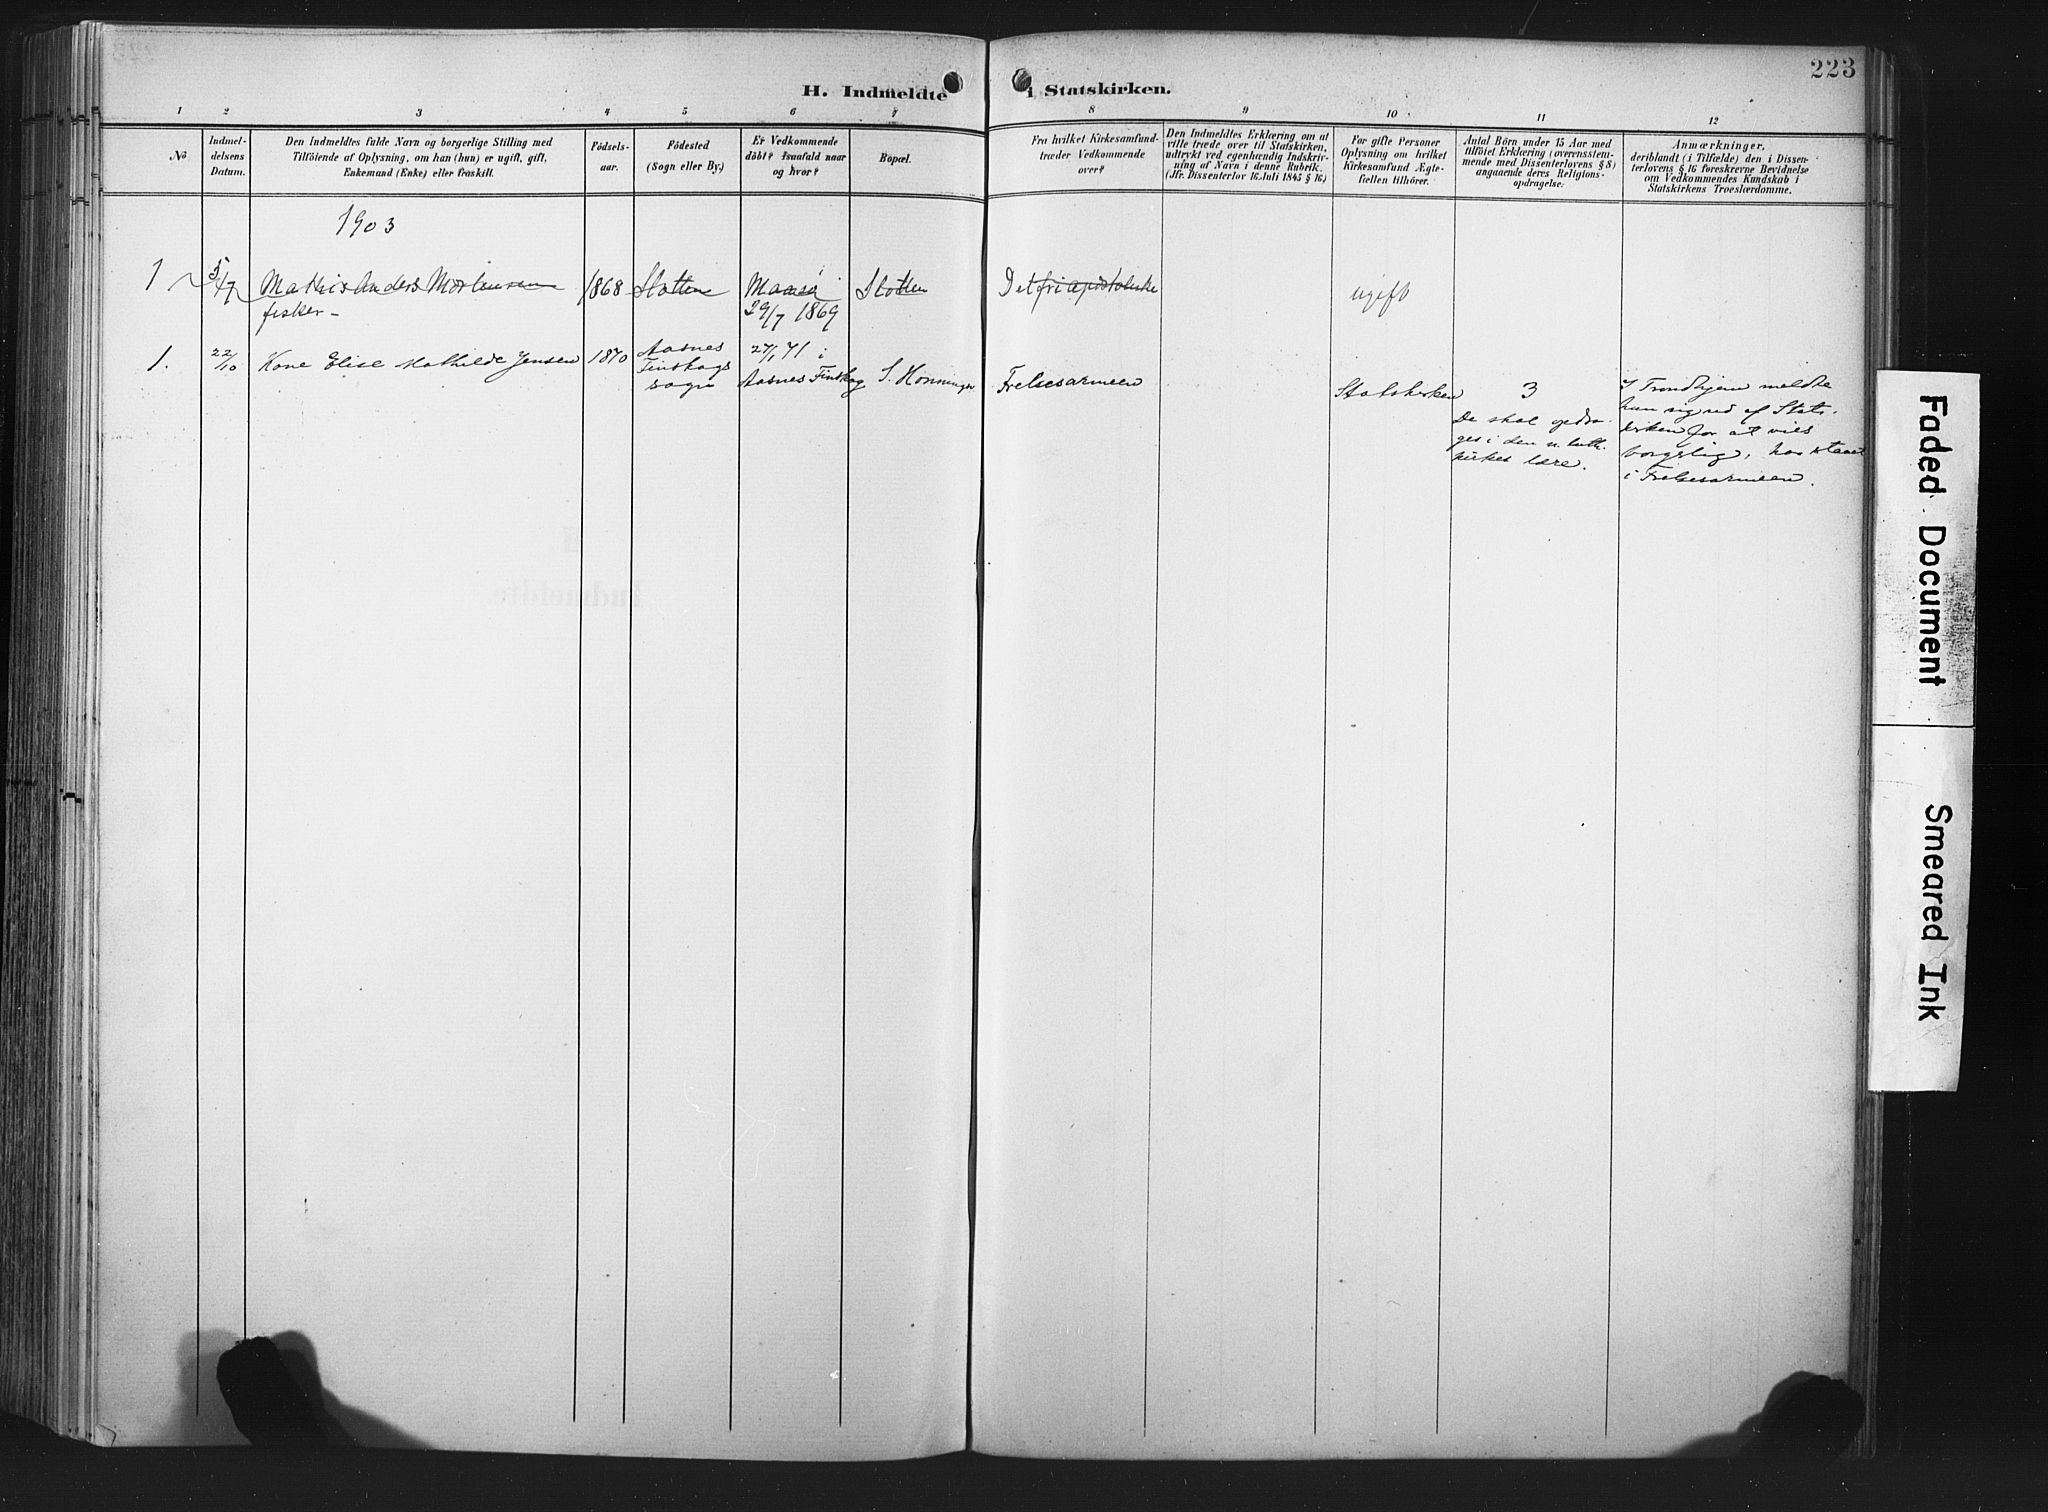 223
H. Indmeldte i Statskirken.
1 2 3 4 5 6 7 8 9 10 11 12
No
Indmel-
delsens
Datum.
Den Indmeldtes fulde Navn og borgerlige Stilling med
Tilföiende af Oplysning, om han (hun) er ugift, gift,
Enkemand (Enke) eller fraskilt.
Födsels-
aar.
Födested
(Sogn eller By.)
Er Vedkommende
döbt? Isaafald naar
og hvor?
Bopæl.
Fra hvilket Kirkesamfund-
træder Vedkommende
over?
Den Indmeldtes Erklæring om at
ville træde over til Statskirken,
udtrykt ved egenhændig Indskriv-
ning af Navn i denne Rubrik.
(Jfr. Dissenterlov 16 Juli 1845 § 16.)
For gifte Personer
Oplysning om hvilket
Kirkesamfund Ægte-
fællen tilhörer.
Antal Börn under 15 Aar med
tilföiet Erklæring (overensstem-
mende med Dissenterlovens § 8)
angaaende deres Religions-
opdragelse:
Anmærkninger,
deriblandt (i Tilfælde) den i Dissen-
terlovens § 16 foreskrevne Bevidnelse
om Vedkommendes Kundskab i
Statskirkens Troeslærdomme.
1903
1 5/7 Mathis Anders Mortensen
fisker-
1868
Slotten
Maasö
29/7 1869
Slotten
Det fri apostoliske
ugift
1. 22/10 Kone Elise Mathilde Jensen
1870
Aasnes
Finskogs
sogn
27/1 71 i
Aasnes Finskog
S. Honningsv
Frelsesarmeen
Statskirken
3
De skal opdra-
ges i den ev. luth.
kirkes lære.
I Trondhjem meldte
hun sig ud af Stats-
kirken for at vies
borgerlig, har staaet
i Frelsesarmeen.
Faded Document
Smeared Ink